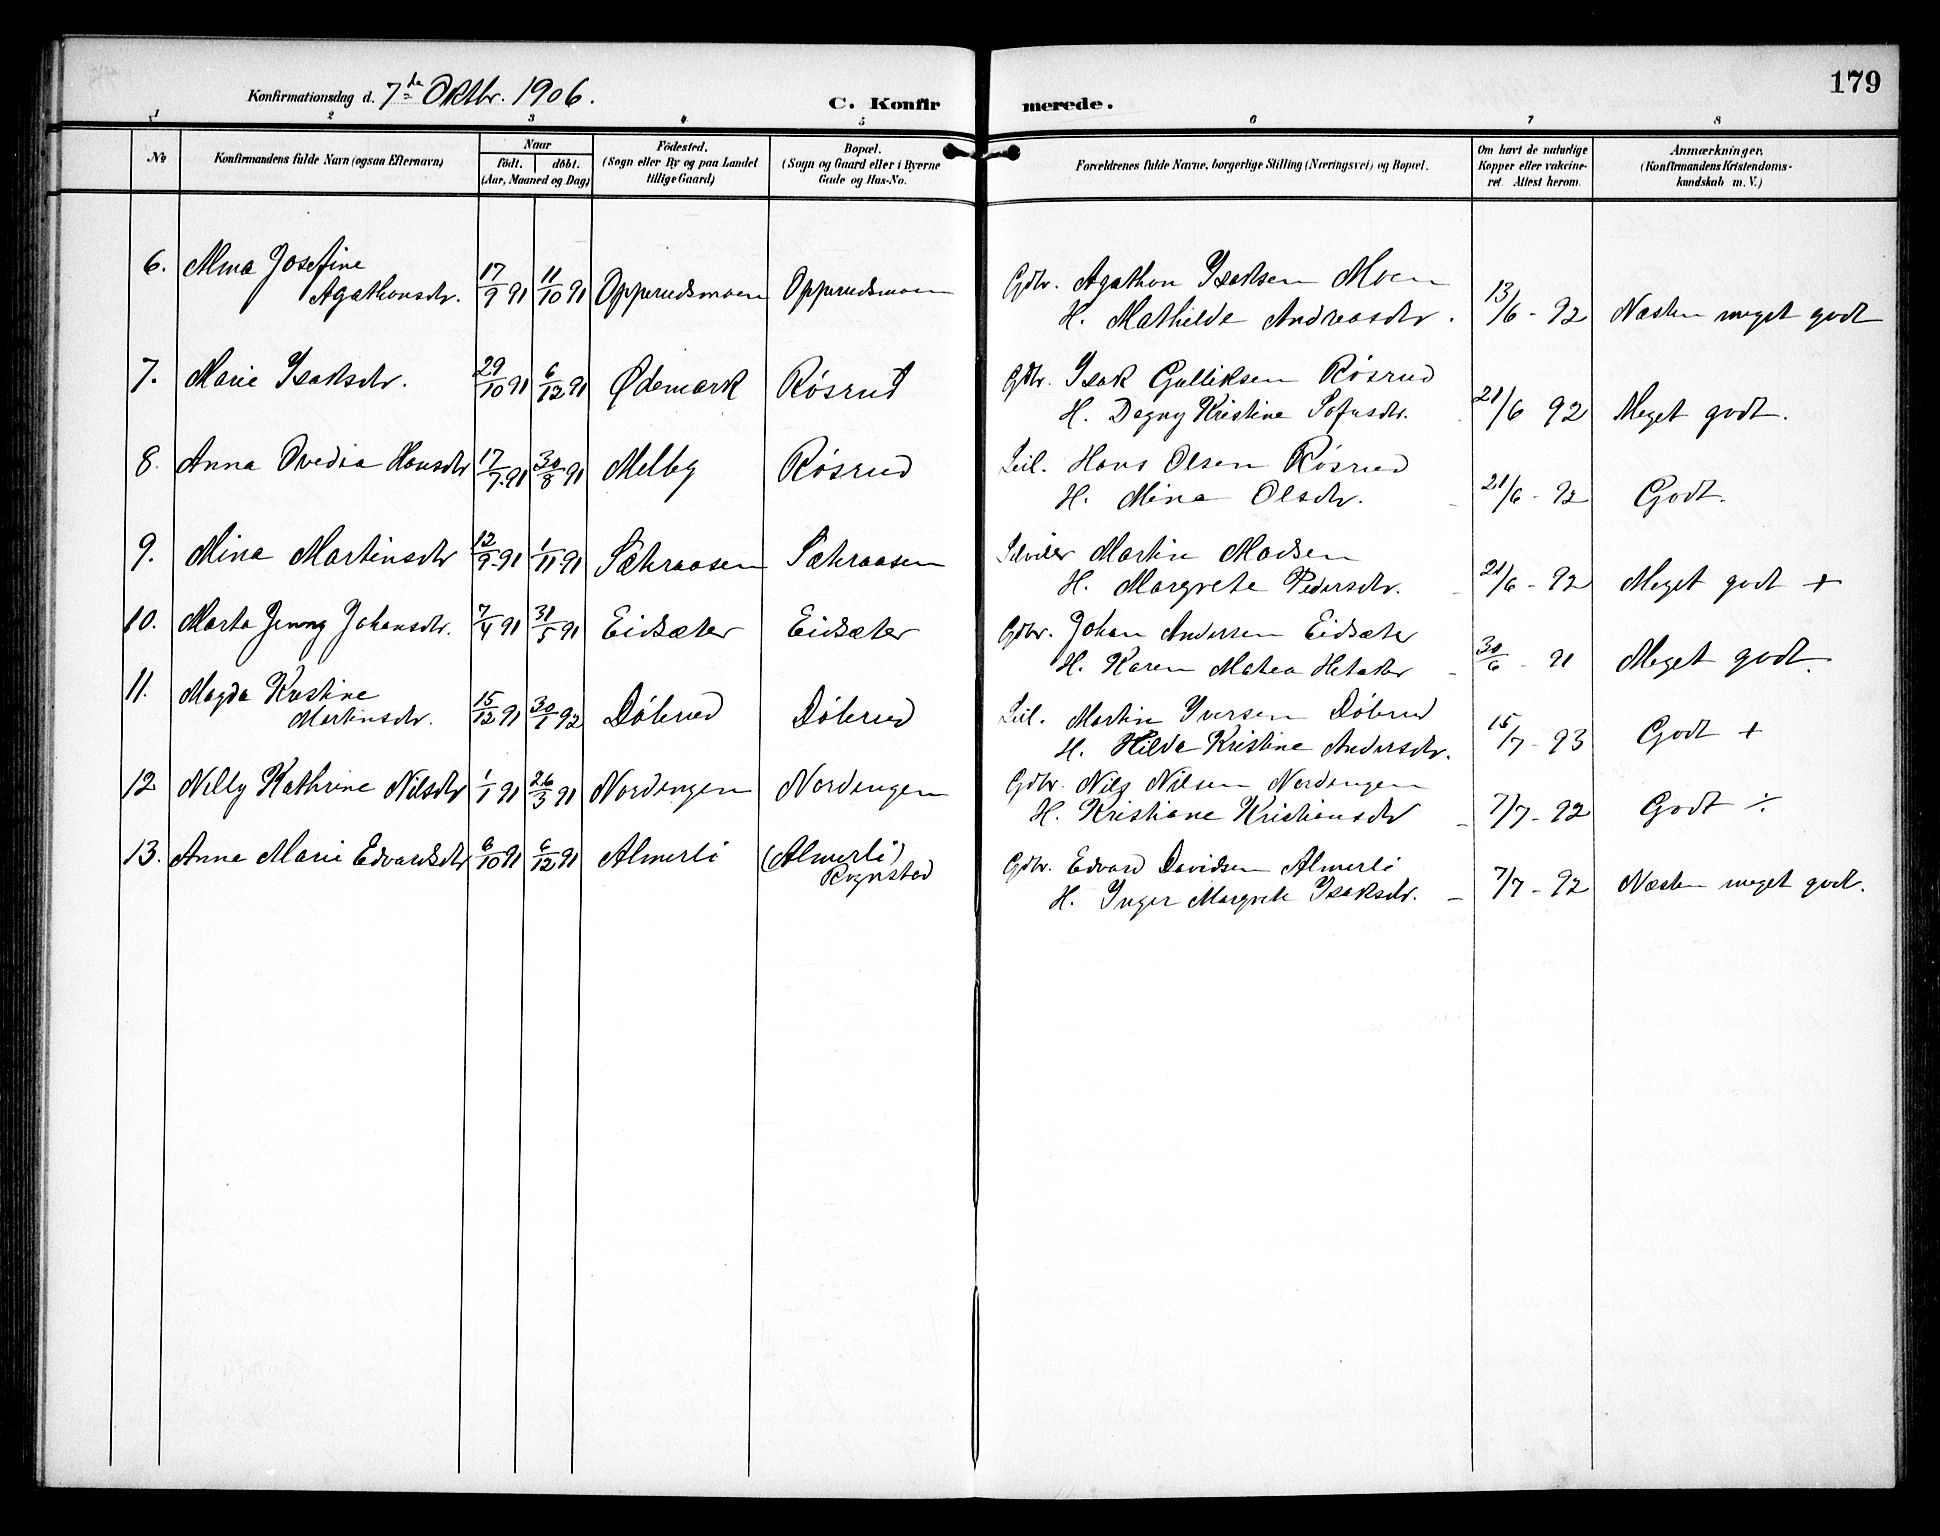 179
Konfirmationsdag d. 7de Oktbr. 1906.
C. Konfirmerede.
1 2 3 4 5 6 7 8
No
Konfirmandens fulde Navn (ogsaa Efternavn)
Naar
födt. döbt.
(Aar, Maaned og Dag)
Födested.
(Sogn eller By og paa Landet
tillige Gaard)
Bopæl.
(Sogn og Gaard eller i Byerne
Gade og Hus-No.
Forældrenes fulde Navne, borgerlige Stilling (Næringsvei) og Bopæl.
Om havt de naturlige
Kopper eller vakcine-
ret. Attest herom.
Anmærkninger.
(Konfirmandens Kristendoms-
kundskab m. V.)
6. Alma Josefine
Agathonsdtr. 17/9 91 11/10 91 Opperudsmoen Opperudsmoen Gdbr. Agathon Isaksen Moen
H. Mathilde Andreasdtr. 13/6 - 92 Næsten meget godt
7. Marie Isaksdtr. 29/10 91 6/12 91 Ødemark Røsrud Gdbr. Isak Gulliksen Røsrud
H. Dagny Kristine Sofusdtr. 21/6 92 Meget godt.
8. Anna Ovedia Hansdtr 17/7 91 30/8 91 Melby Røsrud Leil. Hans Olsen Røsrud
H. Mina Olsdtr. - 21/6 - 92 Godt.
9. Mina Martinsdtr 12/9 91 1/11 91 Sætraasen Sætraasen Selveier Martin Madsen
H. Margrete Pedersdtr. - 21/6 - 92 Meget godt +
10. Marta Jenny Johansdtr. 7/4 91 31/5 91 Eidsæter Eidsæter Gdbr. Johan Andersen Eidsæter
H. Karen Matea - 30/6 - 91 Meget godt.
11. Magda Kristine
Martinsdtr. 15/12 91 30/1 92 Døbrud Døbrud Leil. Martin Iversen Døbrud
H. Hilda Kristine Andersdtr. 15/7 - 93 Godt +
12 Nelly Kathrine Nilsdtr 1/1 91 26/3 91 Nordengen Nordengen Gdbr. Nils Nilsen Nordengen
H. Kristiane Kristiansdtr - 7/7 - 92 Godt ÷
13. Anne Marie Edvardsdtr 6/10 91 6/12 91 Almerli (Almerli)
Rognstad Gdbr. Edvard Davidsen Almerli
H. Inger Margrete Isaksdtr. - 7/7 - 92 Næsten meget godt.